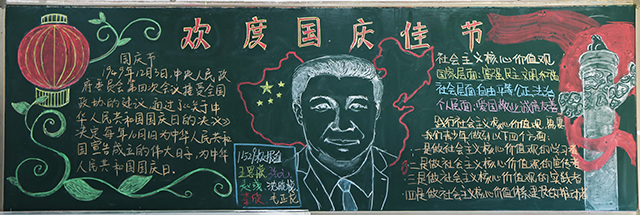 欢度国庆佳节
国庆节
1949年12月3日,中央人民政
府委员会第四次会议接受全国
政协的建议,通过了《关于中
华人民共和国国庆日的决议》
决定每年10月1日为中华人民共和
国宣告成立的伟大日子,为中华
人民共和国国庆日.
社会主义核心价值观
国家层面:富强 民主 文明 和谐
社会层面:自由 平等 公正 法治
个人层面:爱国 敬业 诚信 友善
践行社会主义核心价值观,需要
我们青少年做到以下四个方面:
一是做社会主义核心价值观的学习者
二是做社会主义核心价值观的宣传者
三是做社会主义核心价值观的实践者
四是做社会主义核心价值